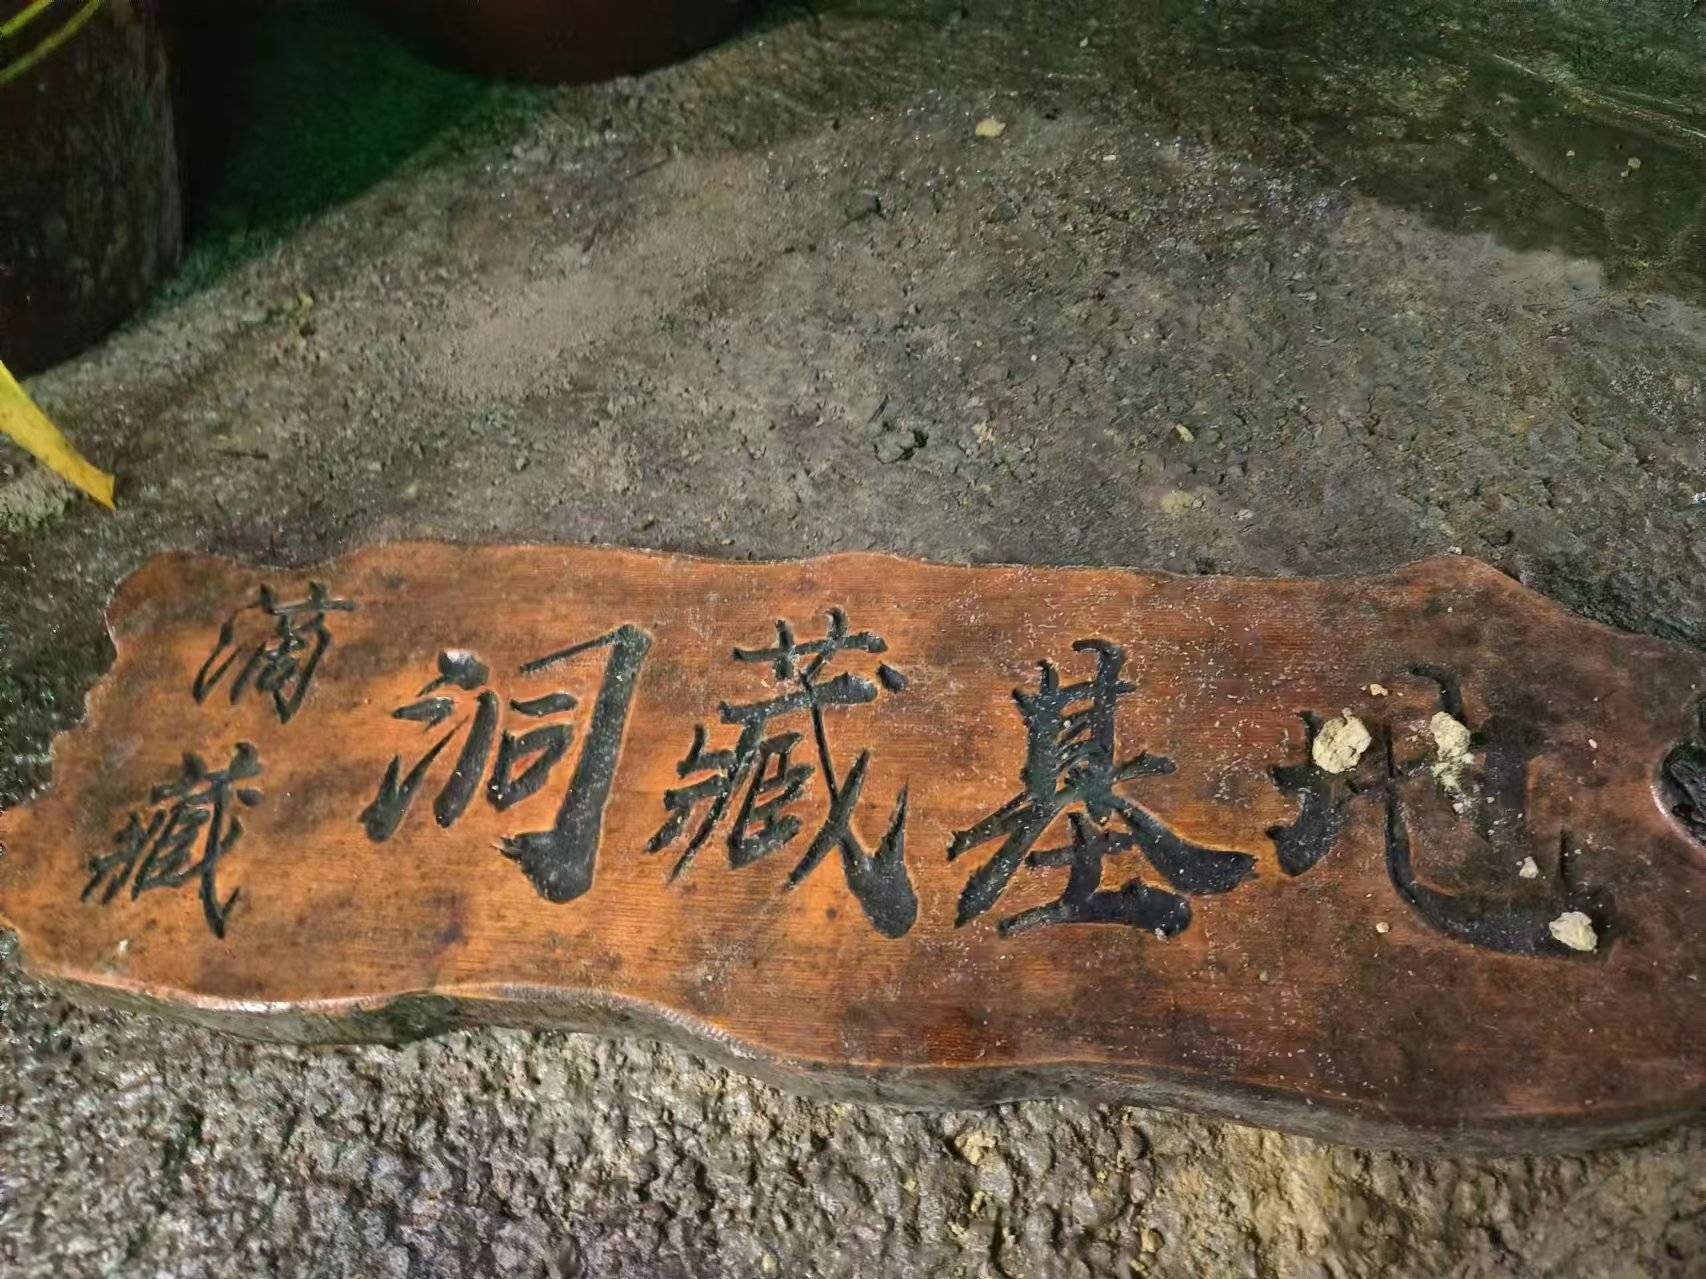 滴藏
洞藏基地